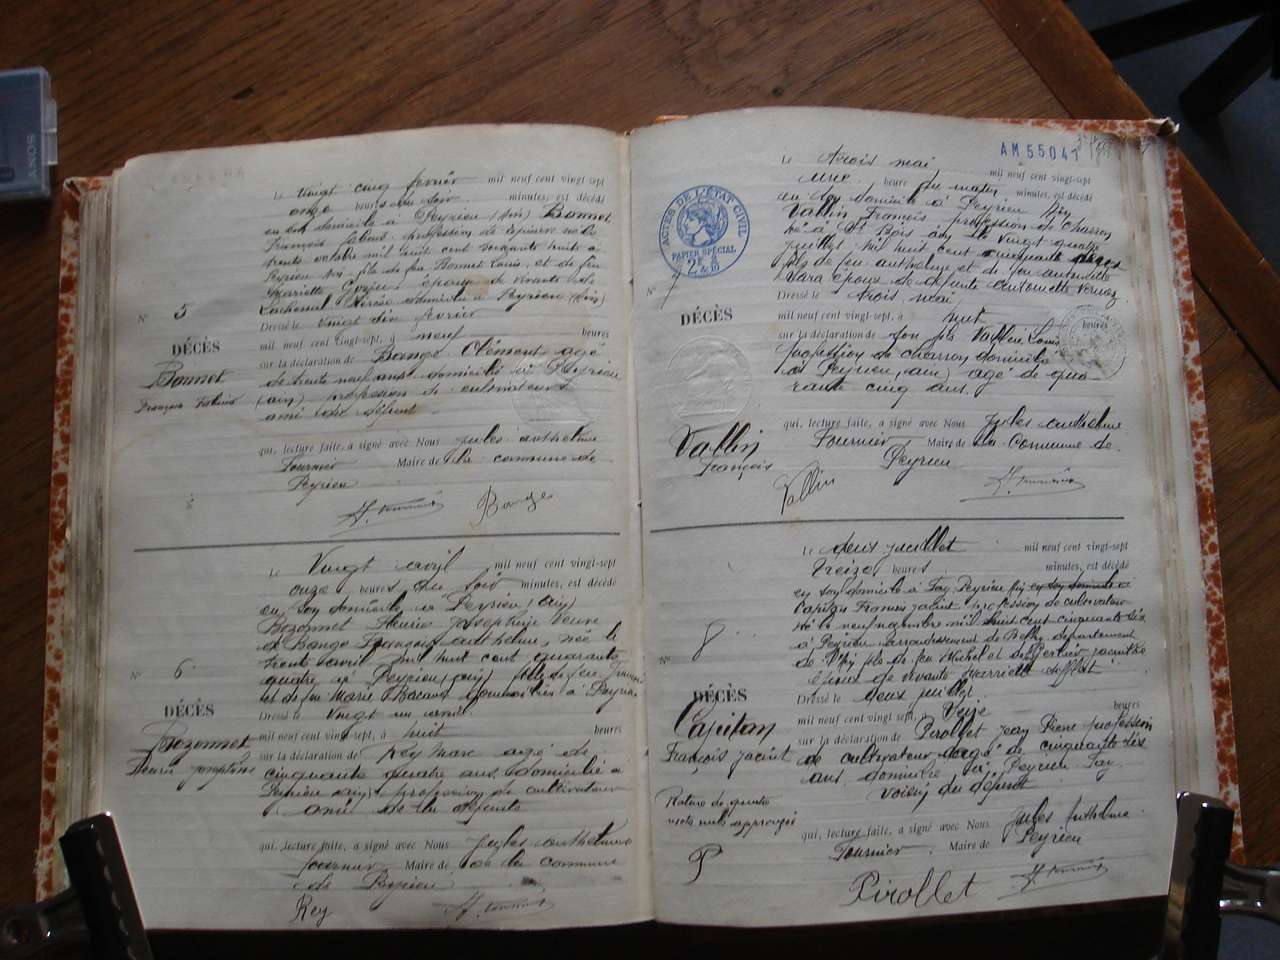 SONY
Le vingt cinq février mil neuf cent vingt-sept
onze heures du soir minutes, est décédé
en son domicile à Peyrieu (Ain) Bonnet
François profession de né le
trente octobre mil huit cent soixante huit à
Peyrieu fils de feu Bonnet Louis et de feu
Mariette époux de vivante
Lachenal domicilié à Peyrieu (Ain)
Dressé le vingt six février
mil neuf cent vingt-sept, à neuf heures
sur la déclaration de Bango Clément agé
de trente neuf ans domicilié à Peyrieu
(Ain) profession de cultivateur
ami du défunt
qui, lecture faite, a signé avec Nous Jules Anthelme
Fournier Maire de la commune de
Peyrieu
N° 5
DÉCÈS
Bonnet
François
Le Vingt avril mil neuf cent vingt-sept
onze heures du soir minutes, est décédé
en son domicile à Peyrieu (Ain)
Bozonnet Josephine veuve
de Bango François Anthelme, née le
trente avril mil huit cent quarante
quatre à Peyrieu (Ain) fille de feu
et de feu Marie domiciliés à Peyrieu
Dressé le vingt un avril
mil neuf cent vingt-sept, à huit heures
sur la déclaration de Rey Marc agé de
cinquante quatre ans domicilié à
Peyrieu (Ain) profession de cultivateur
ami de la défunte
qui, lecture faite, a signé avec Nous Jules Anthelme
Fournier Maire de la commune
de Peyrieu
Rey
N° 6
DÉCÈS
Bozonnet
AM 55041
ACTES DE L'ÉTAT CIVIL
PAPIER SPÉCIAL
Le trois mai mil neuf cent vingt-sept
une heure du matin minutes, est décédé
en son domicile à Peyrieu Ain
Vallin François profession de Charron
né à St Bois Ain le vingt quatre
juillet mil huit cent cinquante
fils de feu Anthelme et de feu Antoinette
époux de défunte Antoinette
Dressé le trois mai
mil neuf cent vingt-sept, à huit heures
sur la déclaration de son fils Vallin Louis
profession de charron domicilié
à Peyrieu (Ain) agé de qua-
rante cinq ans.
qui, lecture faite, a signé avec Nous Jules Anthelme
Fournier Maire de la Commune de
Peyrieu
Vallin
N° 7
DÉCÈS
Vallin
François
Le deux juillet mil neuf cent vingt-sept
treize heures minutes, est décédé
en son domicile à Fay Peyrieu Ain en son domicile à
Capitan François Jacint profession de cultivateur
né le neuf novembre mil huit cent cinquante six
à Peyrieu arrondissement de Belley département
de l'Ain fils de feu Michel et de
époux de vivante Marriette
Dressé le deux juillet
mil neuf cent vingt-sept, à seize heures
sur la déclaration de Pirollet Jean Pierre profession
de cultivateur agé de cinquante six
ans domicilié à Peyrieu Fay
voisin du défunt
qui, lecture faite, a signé avec Nous Jules Anthelme
Fournier Maire de Peyrieu
Pirollet
N° 8
DÉCÈS
Capitan
François Jacint
Rature de quatre
mots nuls approuvés
P